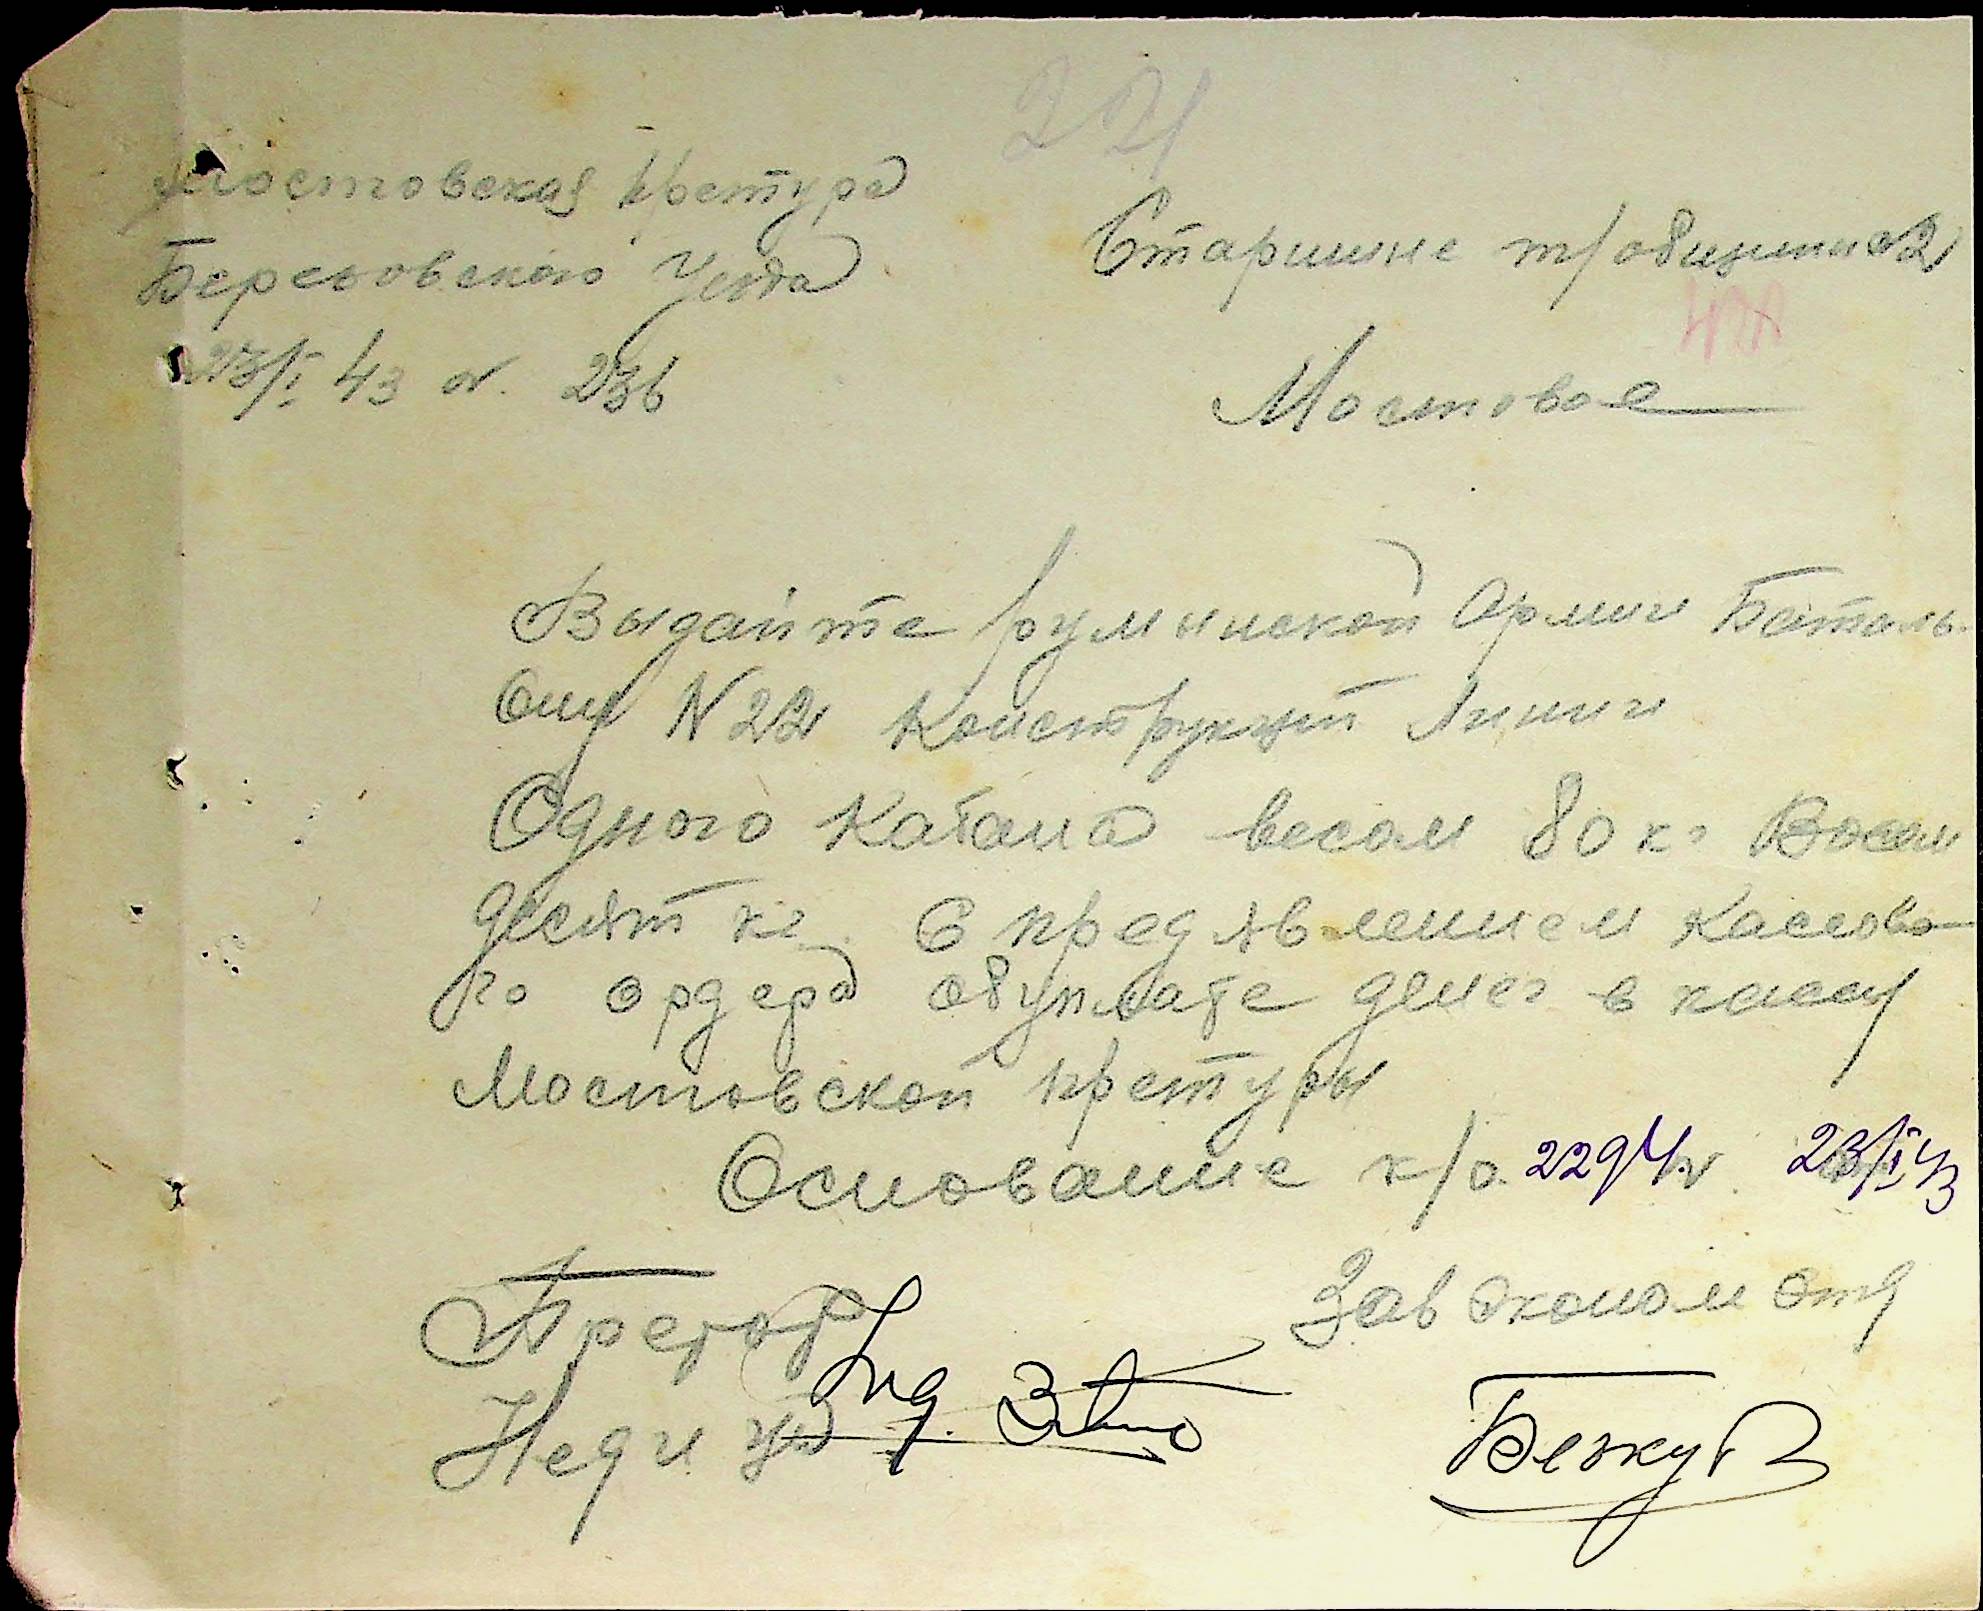 221
Мостовская претура
Березовского Уезда
23/I 43 N. 236
Старшине т/общины №2
Мостовое
Выдайте румынской Армии Баталь-
Ону N 22 Конструкций Линии
Одного Кабана весом 80 кг Восем
десят кг. С предявлением кассово-
го ордера обуплате денег в кассу
Мостовской претуры
Основание к/о. 2294 N. 23/I 43
Претор
Зав Эконом Отд